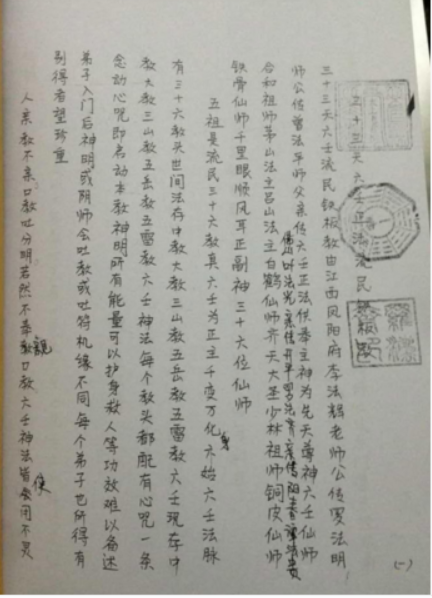 三十三天六壬正法流民
三十三天六壬流民铁板教由江西凤阳府李法
师公传曾法平师父亲传六壬正法供奉主神为先天尊神六壬仙师
合和祖师茅山法主吕山法主白鹤仙师齐天大圣少林祖师铜皮仙师
铁骨仙师千里眼顺风耳正副神三十六位仙师
五祖是流民三十六教真六壬为正主千变万化 始六壬法脉
有三十六教头世间法存中教大教三山教五岳教五雷教六壬现存中
教大教三山教五岳教五雷教六壬神法每个教头都配有心咒一条
念动心咒即启动本教神明所有能量可以护身救人等功效难以备述
弟子入门后神明或阴师会吐教或吐符机缘不同每个弟子也所得有
别得者望珍重
人亲教不亲口教吐分明若然不亲口教六壬神法皆 不灵
(一)